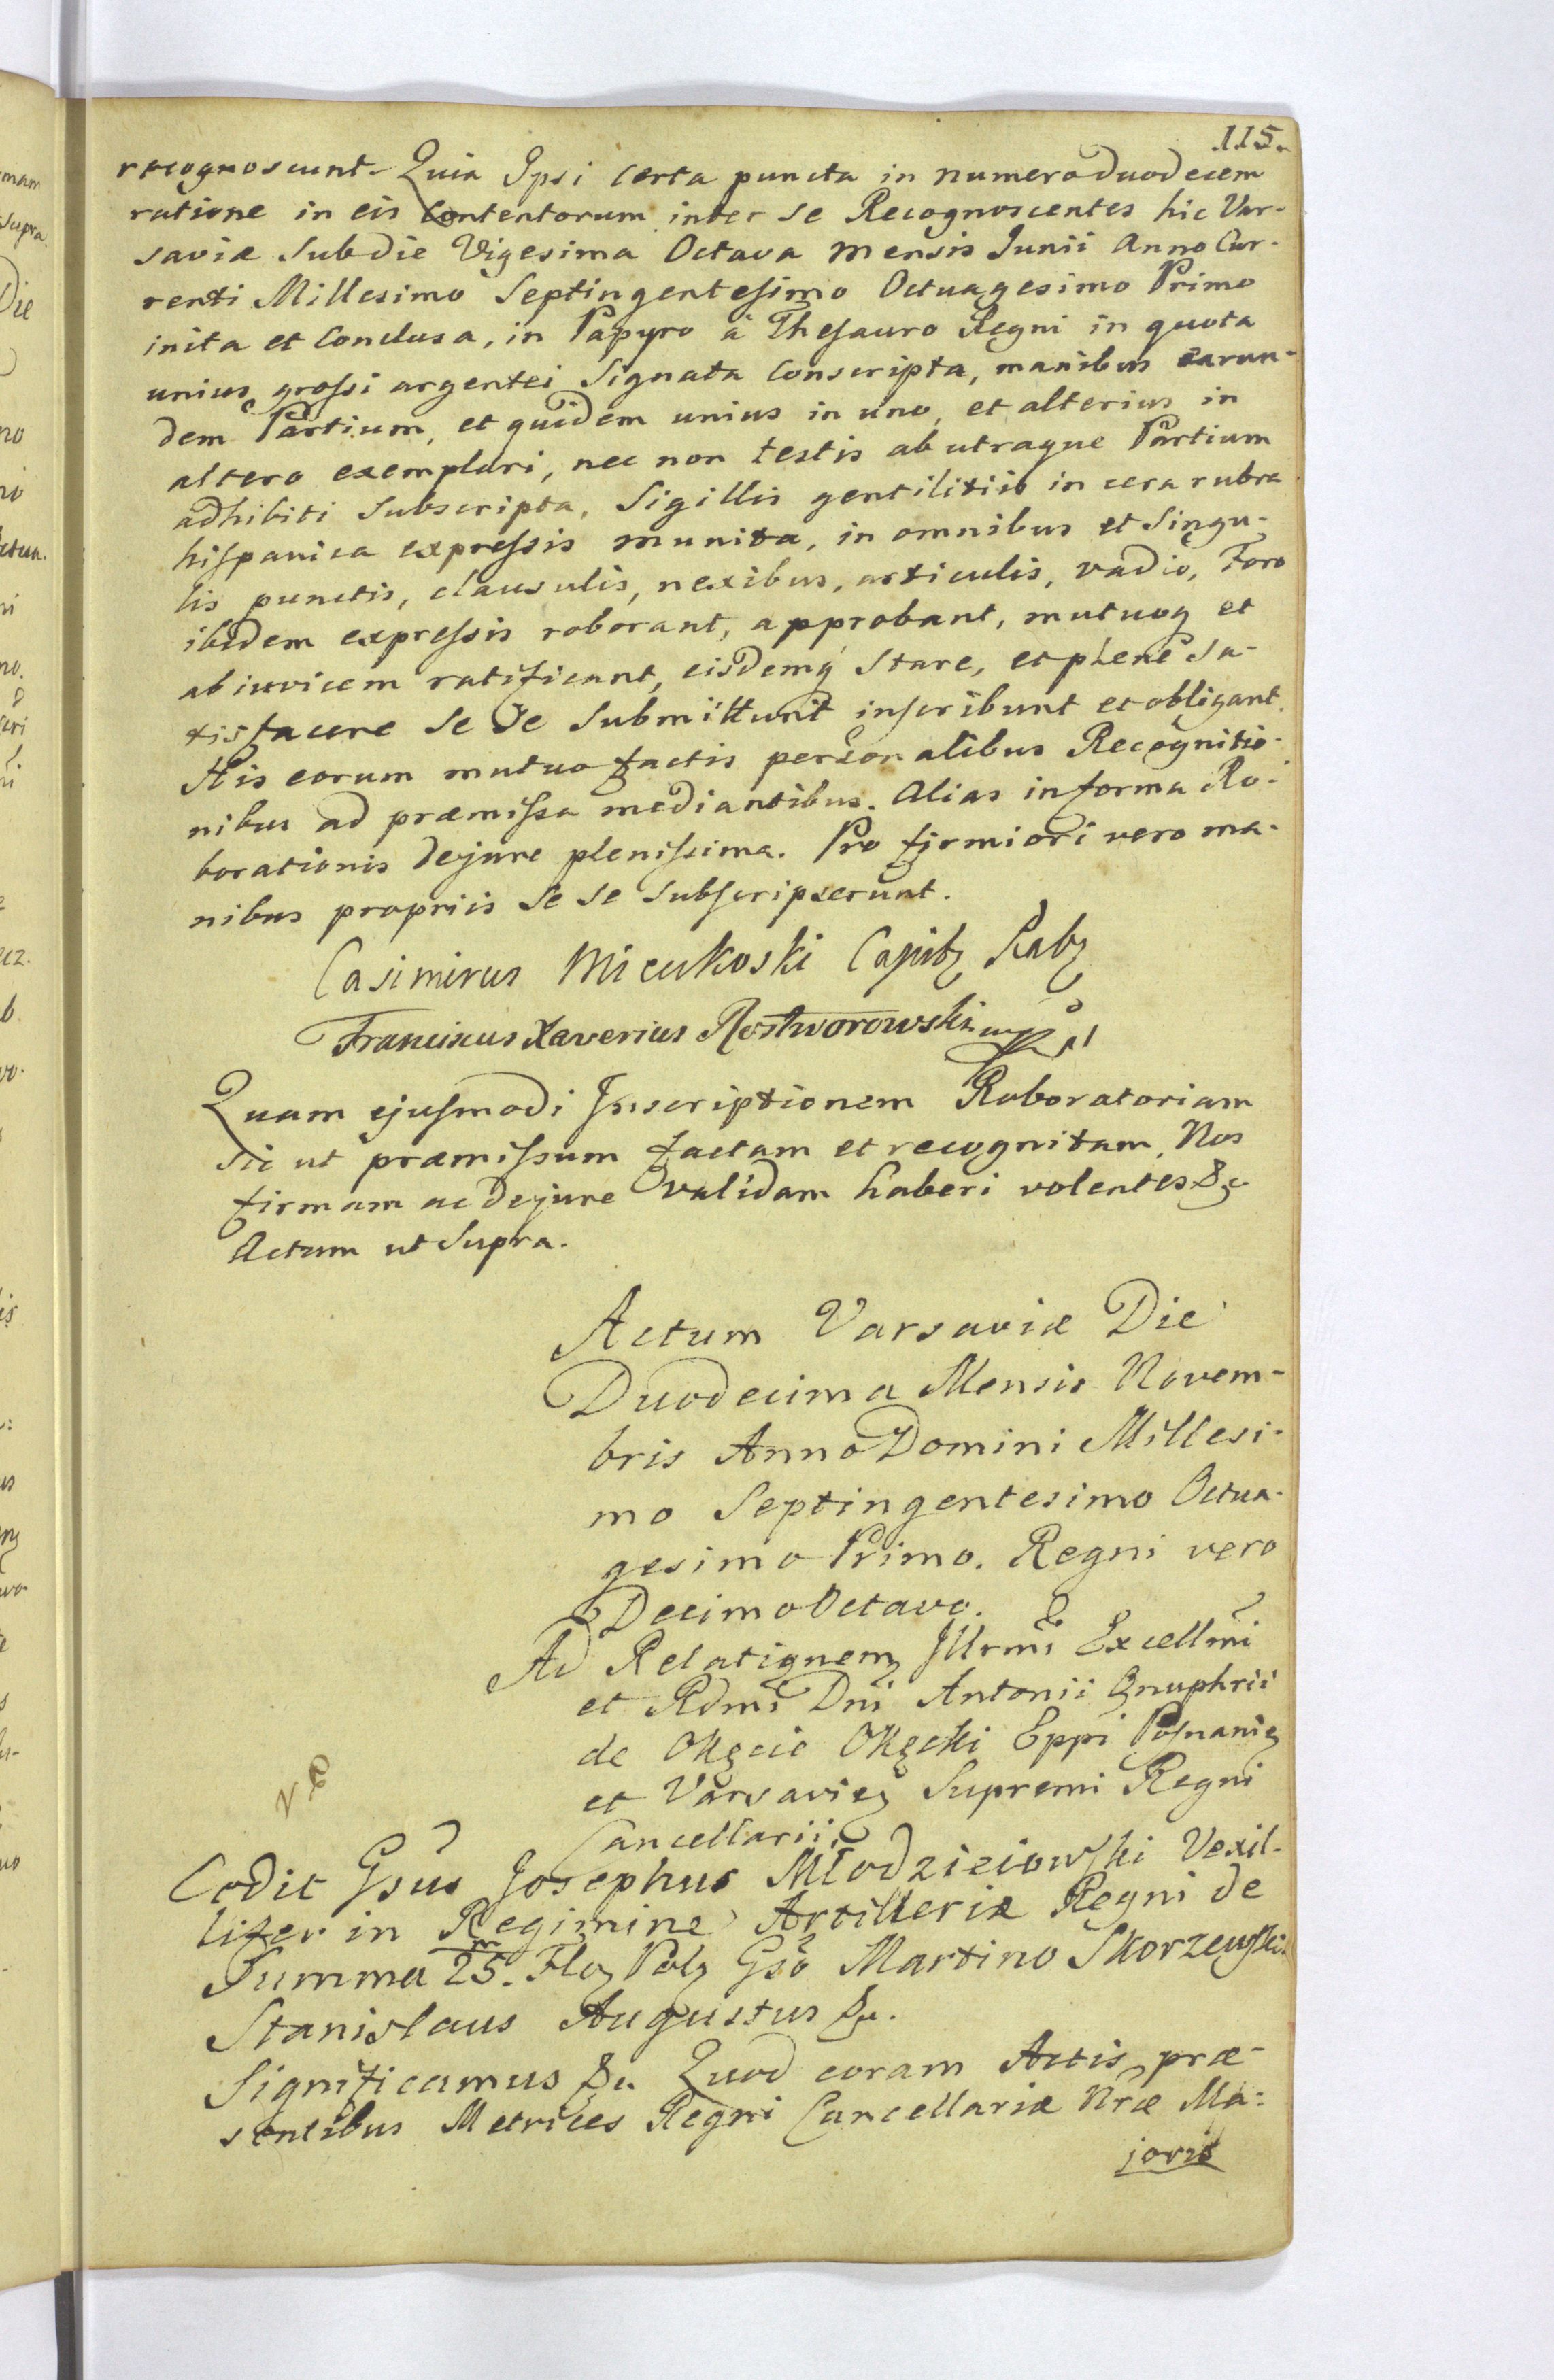 115.
recognoscunt. Quia Ipsi certa puncta in numero duodecem
ratione in eis Contentorum inter se Recognoscentes hic Var-
saviæ sub die Vigesima Octava mensis Junii Anno Cur-
renti Millesimo Septingentesimo Octuagesimo Primo
inita et Conclusa, in Papyro á Thesauro Regni in quota
unius grossi argentei Signata Conscripta, manibus earun-
dem Partium, et quidem unius in uno, et alterius in
altero exemplari, nec non testis ab utraque Partium
adhibiti subscripta, Sigillis gentilitiis in cera rubra
hispanica expressis munita, in omnibus et Singu-
lis punctis, clausulis, nexibus, articulis, vadio, Foro
ibidem expressis roborant, approbant, mutuoq et
ab invicem ratificant, eisdemq stare, et plenè sa-
tisfacere se se submittunt inscribunt et obligant.
His eorum mutuo factis personalibus Recognitio-
nibus ad præmissa mediantibus. Alias in forma Ro-
borationis de jure plenissima. Pro firmiori vero ma-
nibus propriis se se subscripserunt.
Casimirus Capity Raby
Franciscus Xaverius Rostworowski mp
Quam ejusmodi Inscriptionem Roboratoriam
sic ut præmissum factam et recognitam, Nos
firmam ac de jure validam haberi volentes &c
Actum ut Supra.
Actum Varsaviæ Die
Duodecima Mensis Novem-
bris Anno Domini Millesi-
mo Septingentesimo Octua-
gesimo Primo. Regni vero
Decimo Octavo.
Ad Relationem Illrmi Excellmi
et Rdmi Dni Antonii Onuphrii
de Okęcie Okęcki Eppi Posnanię
et Varsavieῃ Supremi Regni
Cancellarii.
Cedit Gsus Josephus Młodzieiowski Vexil-
lifer in Regimine Artilleriæ Regni de
Summa 25.m Floq Polq Gso Martino Skorzewski
Stanislaus Augustus &c.
Significamus &c. Quod coram Actis præ-
sentibus Metrices Regni Cancellariæ Nræ Ma-
joris